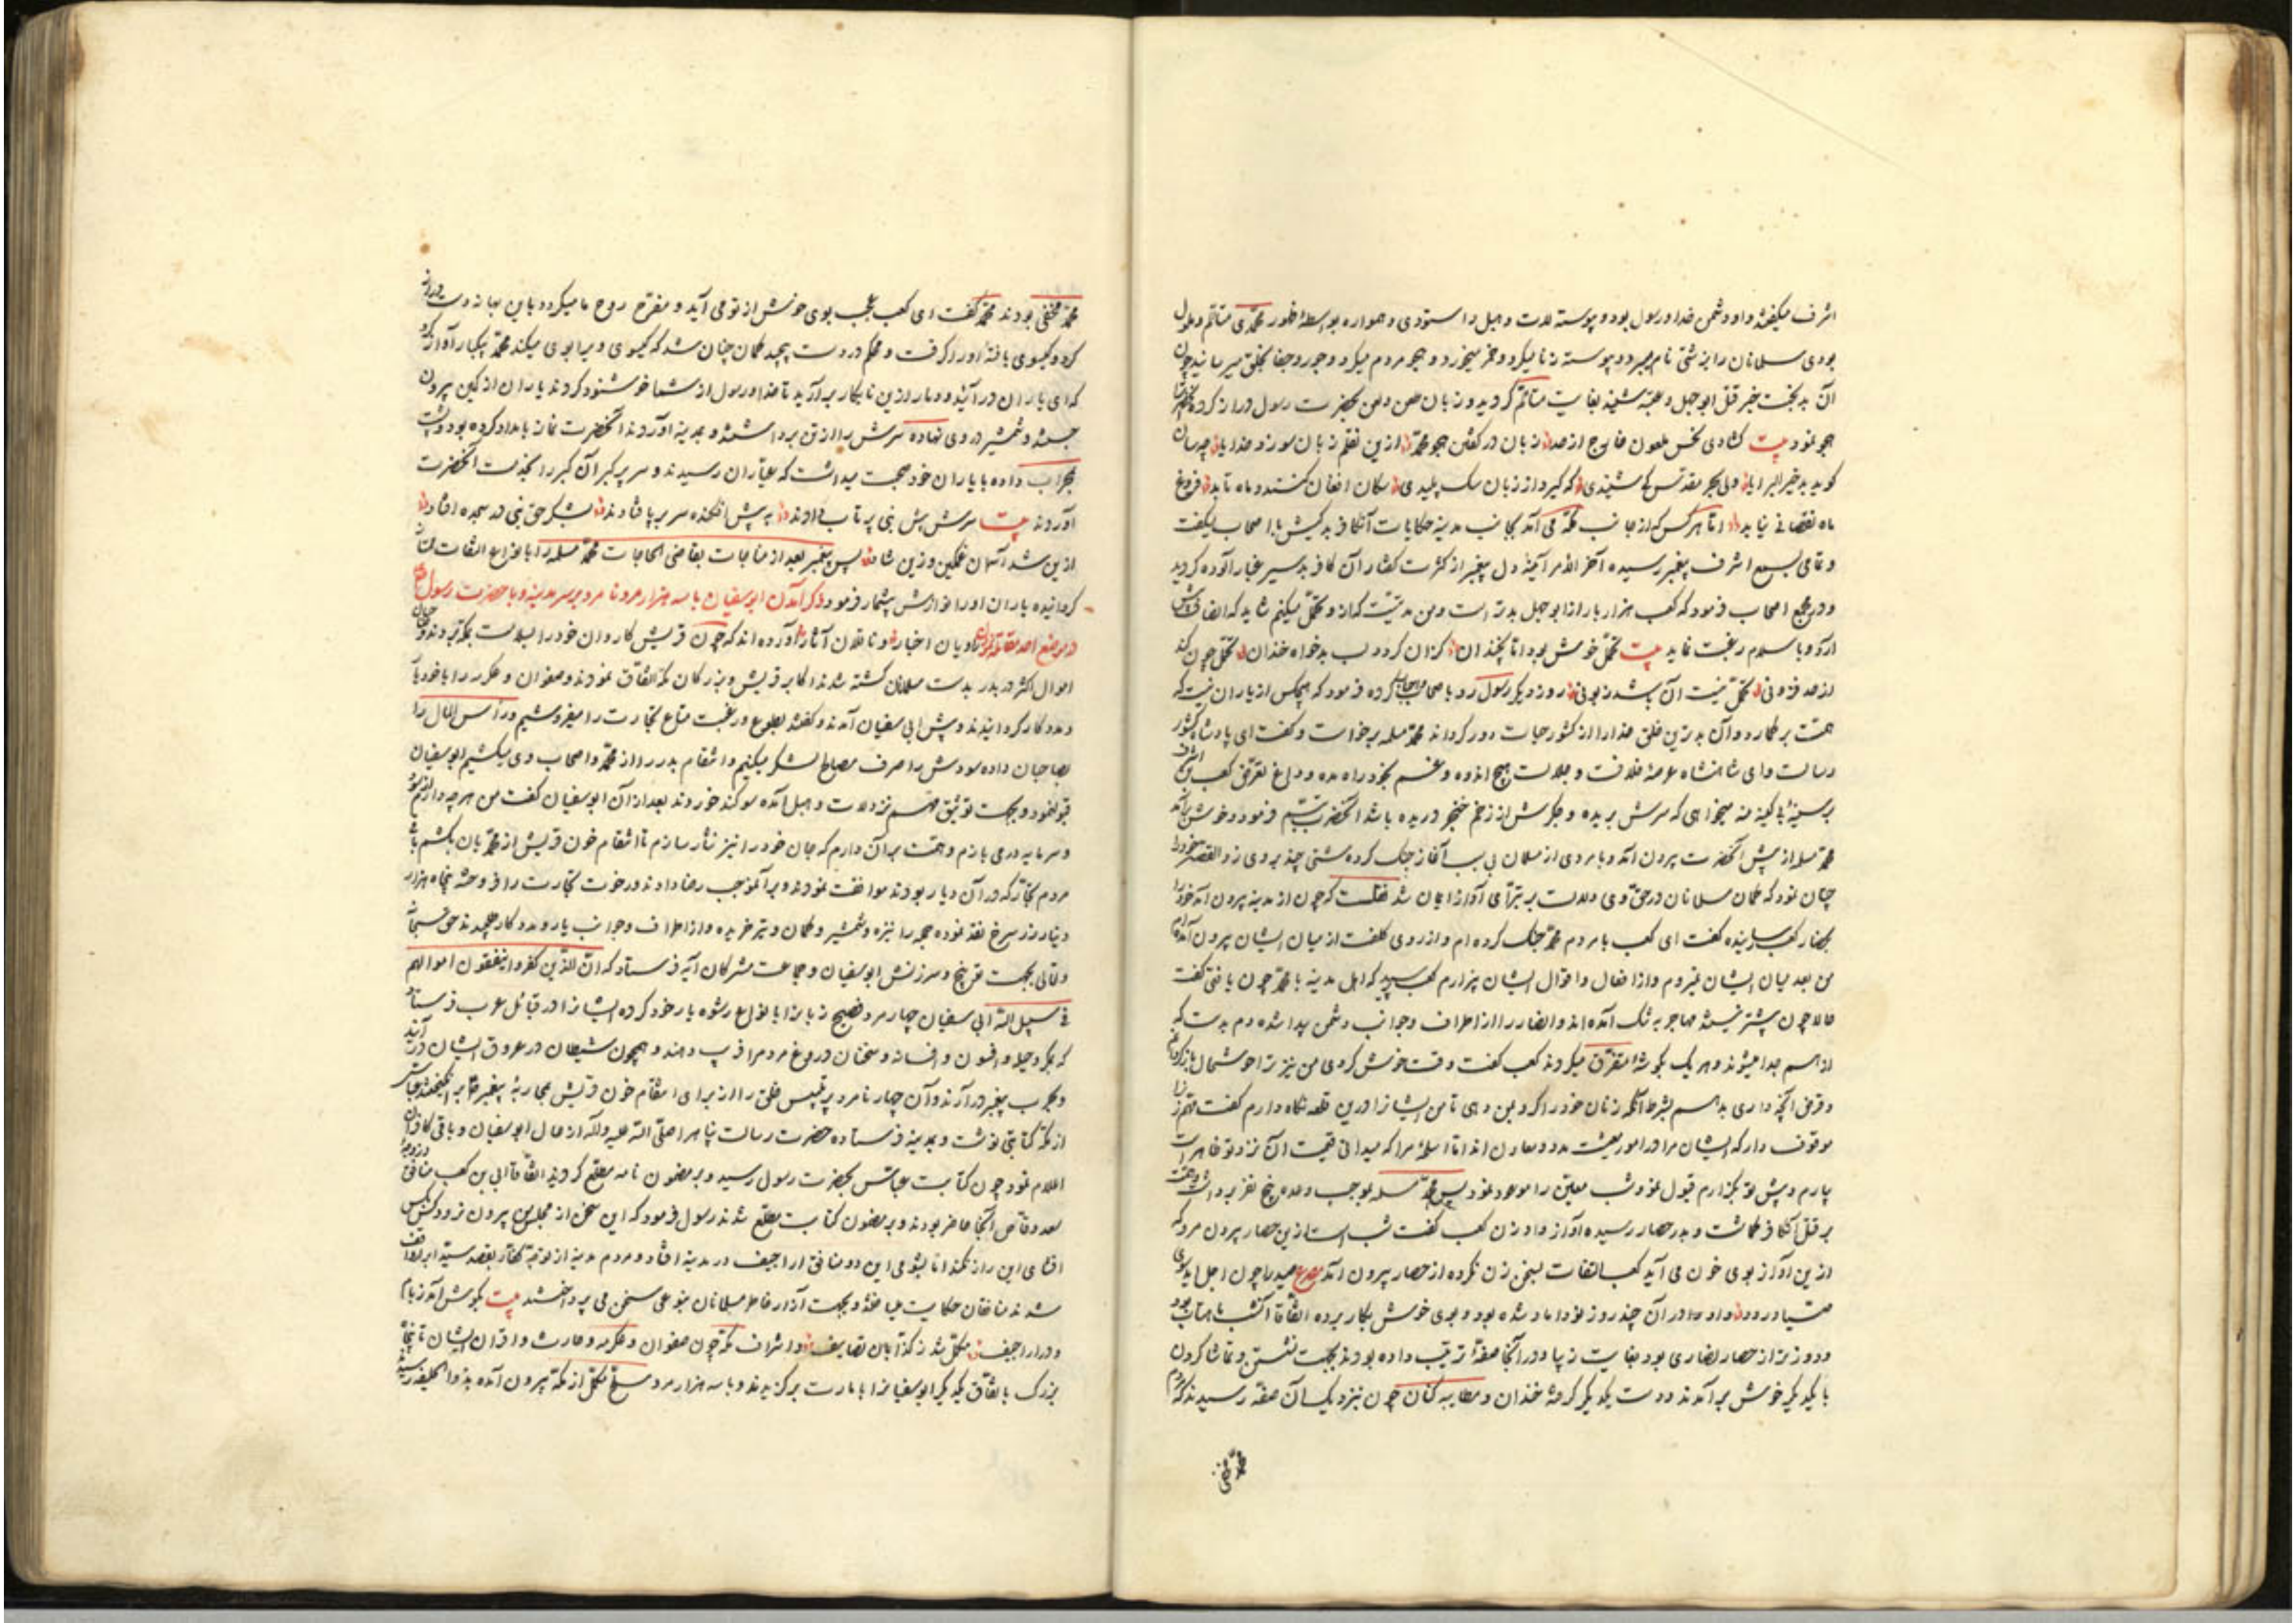 اشرف میگفتند و او دشمن خدا و رسول بود و پیوسته لات و هبل را ستودی و همواره بواسطهٔ ظهور محمدی متألم و ملول
بودی مسلمانان را بزشتی نام میبرد و پیوسته زنا میکرد و خمر میخورد و هجو مردم میکرد و جور و جفا بخلق میرسانید چون
آن بدبخت خبر قتل ابوجهل و عتبه شنید بغایت متألم گردید و زبان طعن و لعن بحضرت رسول دراز کرده
هجو نمود بیت گشادی نحس ملعون خارج از حد زبان در گفتن هجو محمد ازین نظم زبان سوز و خدایا چه سان
گوید بد خیر البرایا ولی بحر مقدس کی شنیدی که گیرد از زبان سگ پلیدی سگان افغان کنند و ماه تابد فروغ
ماه نقصانی نیابد اما هر کس که از جانب مکه می آمد بجانب مدینه حکایات آن کافر بدکیش با اصحاب میگفت
و تمامی بسمع اشرف پیغمبر رسیده آخر الامر آئینهٔ دل پیغمبر از کثرت گفتار آن کافر بدسیر غبار آلوده گردید
و در مجمع اصحاب فرمود که کعب هزار بار از ابوجهل بدتر است و من مدتیست که از و تحمل میکنم شاید که انصاف پیش
آرد و باسلام رغبت نماید بیت تحمل خوش بود اما نچندان کزان گردد لب بدخواه خندان تحمل چون کند
از حد فزونی تحمل نیست آن باشد زبونی روز دیگر رسول رو باصحاب کرده فرمود که هیچکس از یاران نیست که
همت بر گمارد و آن بدترین خلق خدا را از کشور حیات دور گرداند محمد مسلمه برخاست و گفت ای پادشاه کشور
رسالت و ای شاهنشاه عرصهٔ خلافت و جلالت هیچ اندوه و غم بخود راه مده و داغ تعرض کعب بن اشرف
بر سینهٔ با کینه منه میخواهی که سرش بریده و جگرش از زخم خنجر دریده باشد آنحضرت تبسم فرمود و خوش برآمد
محمد مسلمه از پیش آنحضرت بیرون آمد و با مردی از مسلمان بی سبب آغاز جنگ کرده مشتی چند بر وی زد القصه خود را
چنان نمود که گمان مسلمانان در حق وی دلالت بر تبرای او از ایمان شد نقلست که چون از مدینه بیرون آمد خود را
بحصار کعب رسانیده گفت ای کعب با مردم محمد جنگ کرده ام و از روی کلفت از میان ایشان بیرون آمده ام
من بعد میان ایشان نمیروم و از افعال و اقوال ایشان بیزارم کعب پرسید که اهل مدینه با محمد چون یافتی گفت
حالا چون پیشتر نیستند مهاجر به تنگ آمده اند و انصار را از اطراف و جوانب دشمن پیدا شده دم بدست که
از هم جدا میشوند و هر یک بگوشهٔ متفرق میگردند کعب گفت وقت خوش کردی من نیز ترا خوشحال باز گردانم
و قرض آنچه داری بدهم بشرط آنکه زنان خود را گرو بمن دهی تا من ایشانرا درین قلعه نگاه دارم گفت
موقوف دار که ایشان مرا در امور معیشت مدد و معاون اند اما اسلحهٔ مرا که میدانی قیمت آن نزد تو ظاهر است
بیارم و پیش تو بگذارم قبول نمود و شب معین را موعود نمود پس محمد مسلمه بموجب وعده پنج نفر برداشت و همت
بر قتل آن کافر گماشت و بدر حصار رسیده آواز داد زن کعب گفت شب است ازین حصار بیرون مرو که
ازین آواز بوی خون می آید کعب التفات بسخن زن نکرده از حصار بیرون آمد مصرع صید را چون اجل آید سوی
صیاد رود و او را در آن چند روز نو داماد شده بود و بوی خوش بکار برده اتفاقاً آن شب ماهتاب بود
و دور تر از حصار انصاری بود بغایت زیبا و در آنجا صفهٔ ترتیب داده بودند بجهت نشستن و تماشا کردن
با یکدیگر خوش بر آمدند و دست یکدیگر گرفته خندان و مطایبه کنان چون نزدیک آن صفه رسیدند که مردم
محمد مخفی
محمد مخفی بودند محمد گفت ای کعب عجب بوی خوش از تو می آید و مفرح روح ما میگردد باین بهانه دست دراز
کرد و گیسوی بافتهٔ او را گرفت و محکم در دست پیچید گمان چنان شد که گیسوی ویرا بوی میکند محمد بیکبار آواز کرد
که ای یاران در آئید و دمار ازین نابکار برآرید تا خدا و رسول از شما خوشنود گردند یاران از کمین بیرون
جستند و شمشیر در وی نهاده سرش را از تن برداشتند و بمدینه آوردند آنحضرت نماز بامداد کرده بود و پشت
بمحراب داده با یاران خود صحبت میداشت که عیاران رسیدند و سر پر کبر آن گبر را بخدمت آنحضرت
آوردند بیت سرش پیش نبی پرتاب دادند به پیش افکنده سر بر پا فتادند بشکر حق نبی در سجده افتاد
ازین شد آسمان غمگین و زمین شاد پس پیغمبر بعد از مناجات بقاضی الحاجات محمد مسلمه را بانواع التفات ممتاز
گردانیده یاران او را نوازش بیشمار فرمود ذکر آمدن ابوسفیان با سه هزار مرد نامرد بر سر مدینه و با حضرت رسول
در موضع احد مقاتله نمودن راویان اخبار و ناقلان آثار آورده اند که چون قریش کاروان خود را بسلامت بمکه بردند و چون
اموال اکثر در بدر بدست مسلمانان کشته شدند اکابر قریش و بزرگان مکه اتفاق نمودند و صفوان و عکرمه را با خود یار
و مددکار گردانیدند و پیش ابی سفیان آمدند و گفتند بطوع و رغبت متاع تجارت را میفروشیم و رأس المال را
بصاحبان داده سودش را صرف مصالح لشکر میکنیم و انتقام بدر را از محمد و اصحاب وی میکشیم ابوسفیان
قبول نمود و بجهت توثیق قسم نزد لات و هبل آمده سوگند خوردند بعد از آن ابوسفیان گفت من هر چه دارم از سود
و سرمایه در می بازم و همت بر آن دارم که جان خود را نیز نثار سازم تا انتقام خون قریش از محمدیان بکشم
مردم تجار که در آن دیار بودند موافقت نمودند و بر آنموجب رضا دادند و رخوت تجارت را فروخته پنجاه هزار
دینار زر سرخ نقد نموده همه را نیزه و شمشیر و کمان و تیر خریده و از اطراف و جوانب یار و مددکار طلبیدند حق سبحانه
و تعالی بجهت توبیخ و سرزنش ابوسفیان و جماعت مشرکان آیه فرستاد که ان الذین کفروا ینفقون اموالهم
فی سبیل الله ابی سفیان چهار مرد فصیح زبانرا بانواع رشوه یار خود کرده ایشانرا در قبائل عرب فرستاد
که بمکر و حیله و افسون و افسانه و سخنان دروغ مردم را فریب دهند و همچون شیطان در عروق ایشان در آیند
و بحرب پیغمبر در آرند و آن چهار نامرد پر تلبیس خلق را از برای انتقام خون قریش بمحاربهٔ پیغمبر برانگیختند عباس
از مکه کتابتی نوشت و بمدینه فرستاده حضرت رسالت پناه را صلی الله علیه و آله از حال ابوسفیان و باقی کافران
اعلام نمود چون کتابت عباس بحضرت رسول رسید و بر مضمون نامه مطلع گردید اتفاقاً ابی بن کعب منافق
سعد وقاص آنجا حاضر بودند و بر مضمون کتابت مطلع شدند رسول فرمود که این سخن از مجلس من بیرون نرود و کسی
افشای این راز نکند اما بشومی این دو منافق اراجیف در مدینه افتاد و مردم مدینه از توجه کفار بقصد سید ابرار واقف
شدند منافقان حکایت میساختند و بجهت آزار خاطر مسلمانان بنوعی سخن می پرداختند بیت بگوش آمد زبان
در اراجیف مکمل شد ز کذابان تصانیف و اشراف مکه چون صفوان و عکرمه و حارث و اقران ایشان
بزرگ باتفاق یکدیگر ابوسفیانرا بامارت برگزیدند و با سه هزار مرد مسلح مکمل از مکه بیرون آمده بذوالحلیفه رسیدند